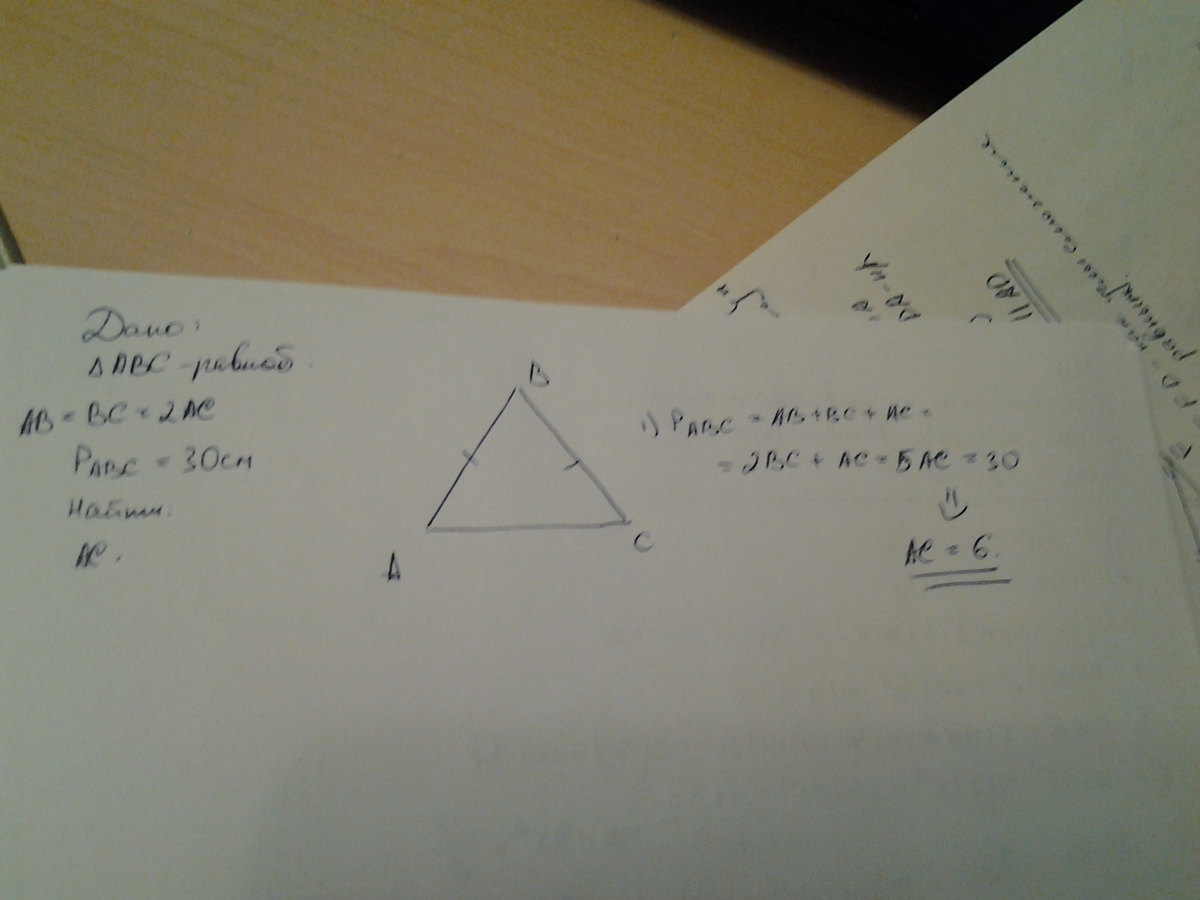 Дано:
△ABC - равноб.
AB = BC = 2AC
P_ABC = 30см
Найти:
AC.
B
A
C
1) P_ABC = AB+BC+AC=
= 2BC + AC = 5AC = 30
⇓
AC = 6.
|| AD